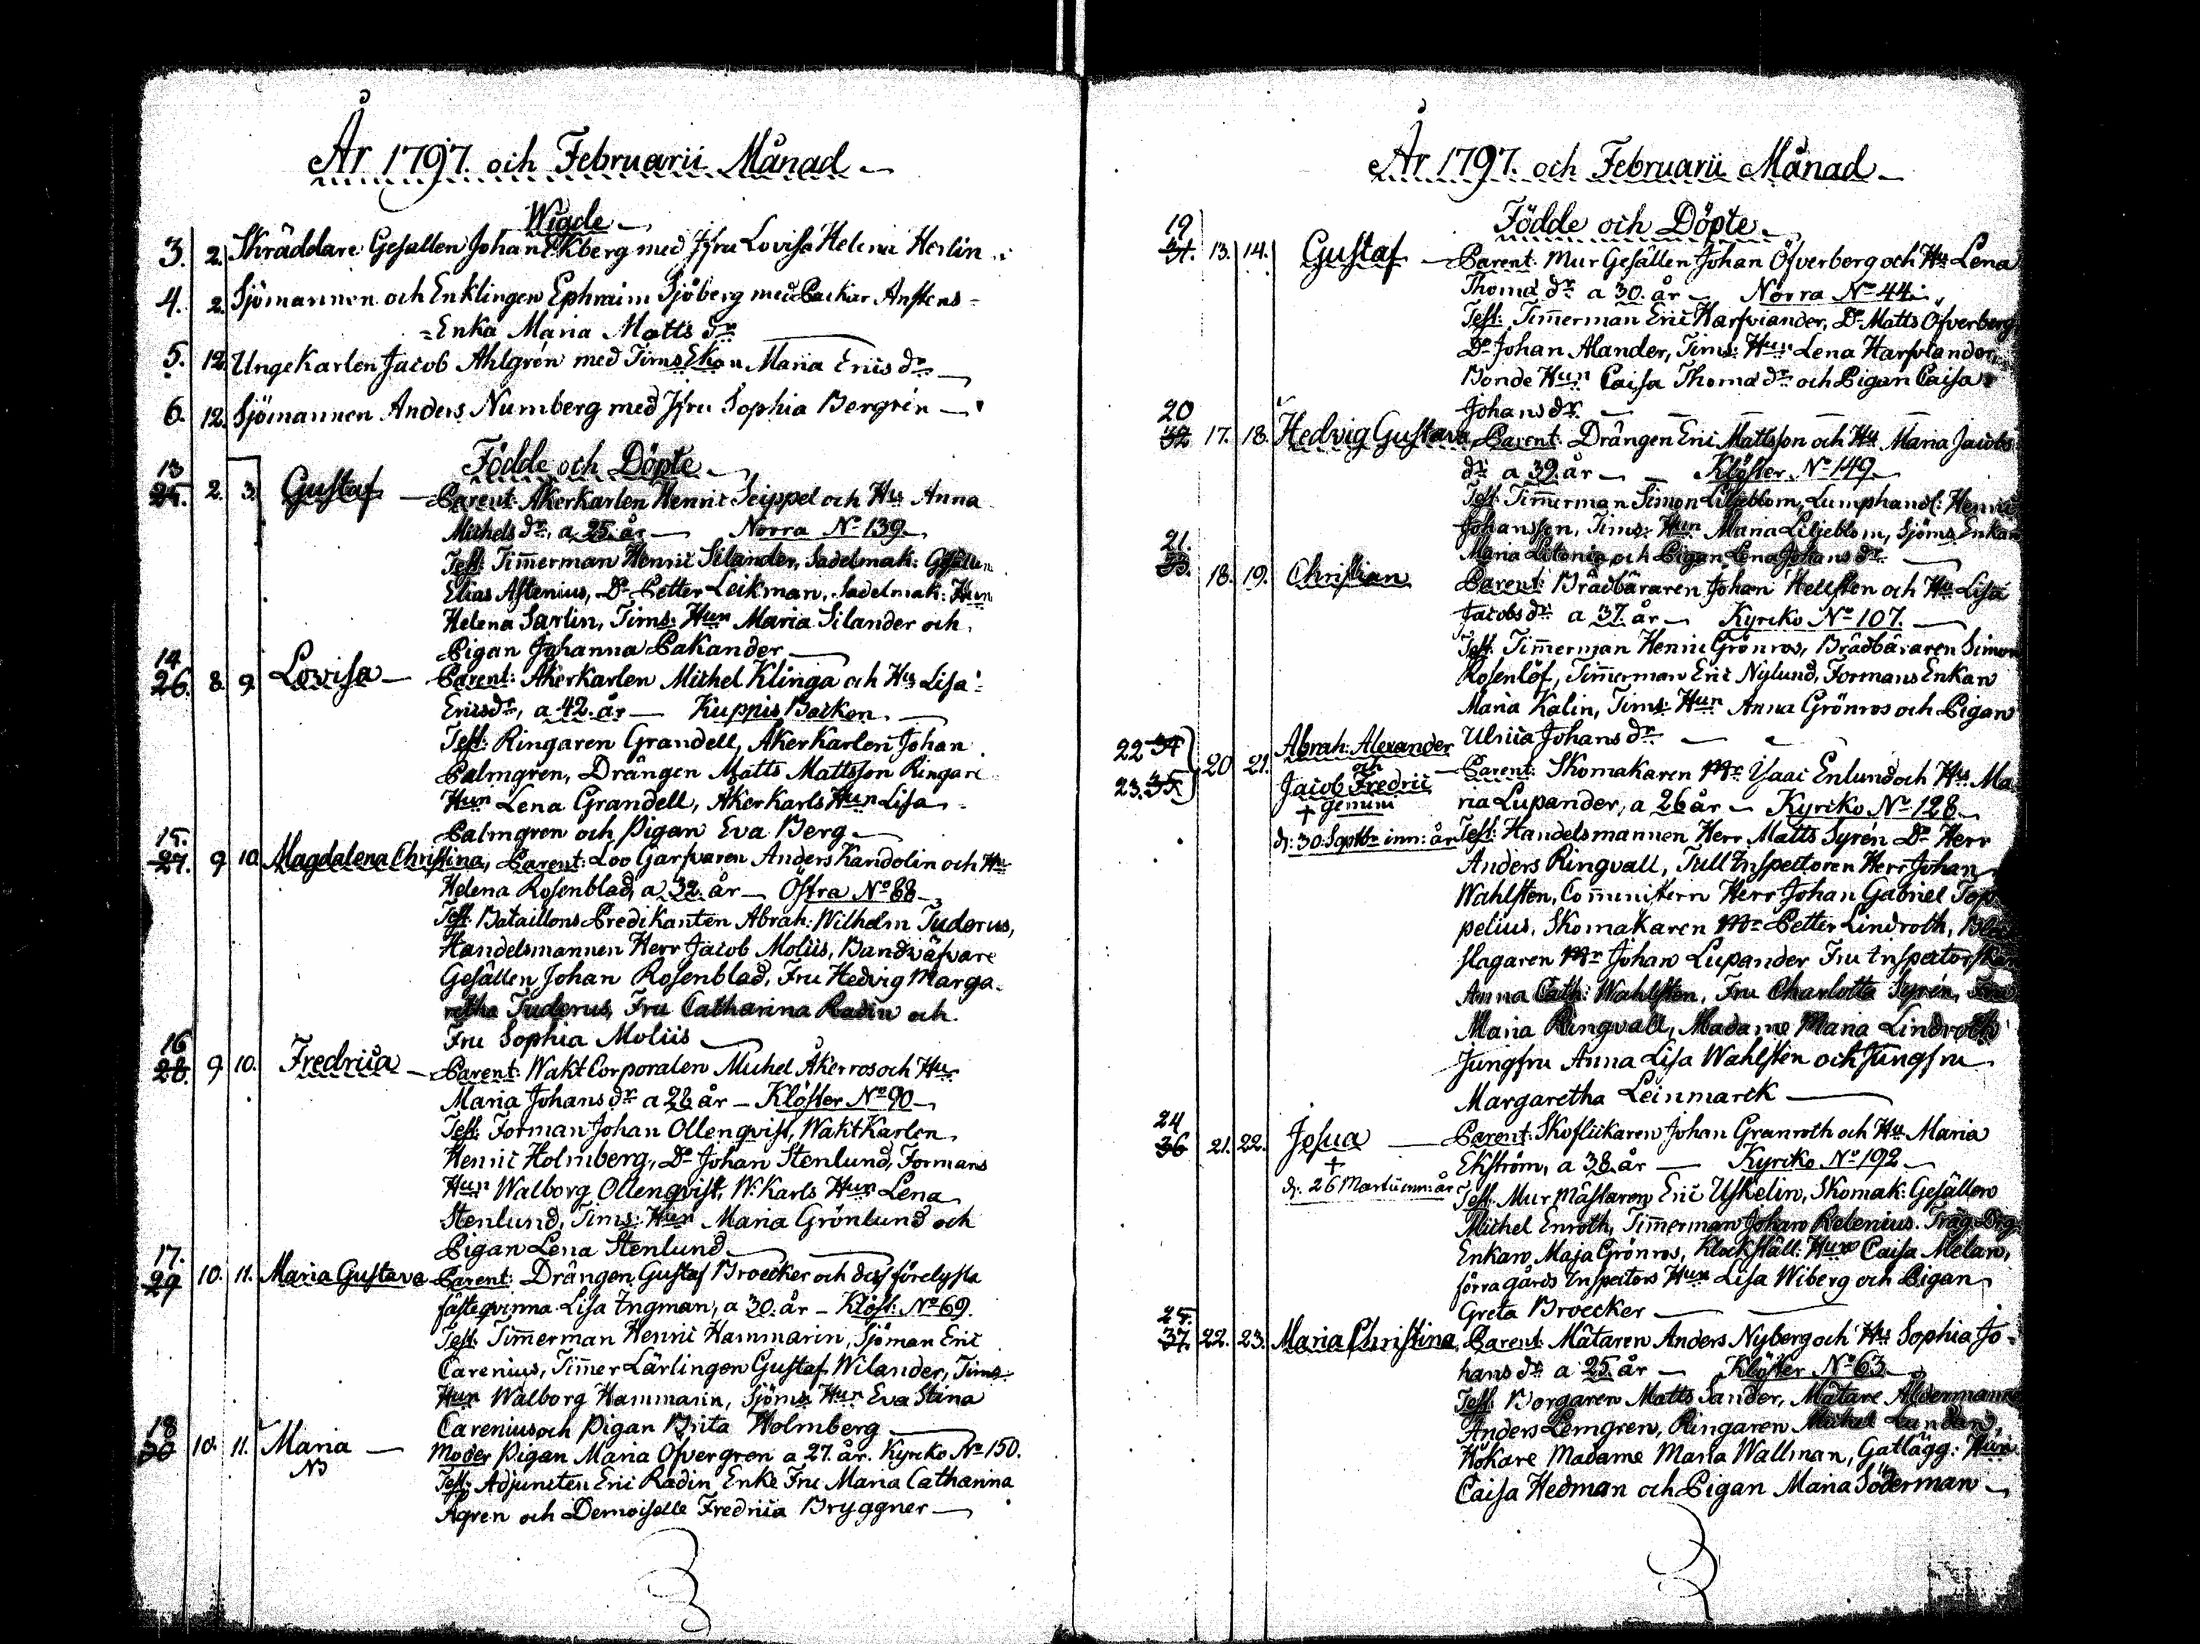 År 1797. och Februarii Månad
Wigde
3. 2. Skräddare Gesällen Johan Ekberg med Jfru Lovisa Helena Herlin
4. 2. Sjömannen och Enklingen Ephraim Sjöberg med Backar
= Enka Maria Matts dr
5. 12. Unge Karlen Jacob Ahlgrén med Tims Ekan Maria Erics dr
6. 12. Sjömannen Anders Numberg med Jfru Sophia Bergrén
Födde och Döpte
13
25. 2. 3. Gustaf Parent: Åkerkarlen Henric Seippel och Hu Anna
Michels dr, a 25. år Norra No 139.
Test: Timerman Henric Silander, Sadelmak: Gesällen
Elias Astenius, Do Petter Leikman, Sadelmak: Hun
Helena Sarlin, Tims: Hun Maria Silander och
Pigan Johanna Pakander
14
26. 8. 9. Lovisa Parent: Åkerkarlen Michel Klinga och Hu Lisa
Ericsdr, a 42. år Kuppis Backen.
Test: Ringaren Grandell, Åkerkarlen Johan
Palmgren, Drängen Matts Mattsson Ringare
Hun Lena Grandell, Åkerkarls Hun Lisa
Palmgren och Pigan Eva Berg
15.
27. 9 10. Magdalena Christina, Parent: Loo Garfvaren Anders Kandolin och Hu
Helena Rosenblad, a 32. år Östra No 88
Test: Bataillons Predikanten Abrah: Wilhelm Tuderus,
Handelsmannen Herr Jacob Moliis, Bandväfvare
Gesällen Johan Rosenblad, Fru Hedvig Marga-
retha Tuderus, Fru Catharina Radin och
Fru Sophia Moliis
16
28. 9 10. Fredrica Parent: Wakt Corporalen Michel Åkerros och Hu
Maria Johans dr a 28 år Klöster No 90
Test: Forman Johan Ollenqvist, Wakt Karlen
Henric Holmberg, Do Johan Stenlund, Formans
Hun Walborg Ollenqvist, W: Karls Hun Lena
Stenlund, Tims: Hun Maria Grönlund och
Pigan Lena Stenlund
17.
29 10. 11. Maria Gustava Parent: Drängen Gustaf Broecker och dess förelysta
fästeqvinna Lisa Ingman, a 30. år Klöst: No 69.
Test: Timerman Henric Hammarin, Sjöman Eric
Carenius, Timer Lärlingen Gustaf Wilander, Tims
Hun Walborg Hammarin, Sjöms Hun Eva Stina
Carenius och Pigan Brita Holmberg
18
30 10. 11. Maria Moder Pigan Maria Öfvergren a 27. år. Kyrko No 150.
NB Test: Adjuncten Eric Radin Enke Fru Maria Catharina
Ågren och Demoiselle Fredrica Bryggner
År 1797. och Februarii Månad
Födde och Döpte
19
31. 13. 14. Gustaf Parent: Mur Gesällen Johan Öfverberg och Hu Lena
Thoma dr a 30. år Norra No 44.
Test: Timerman Eric Harfviander, Do Matts Öfverberg
Do Johan Alander, Tims: Hun Lena Harfviander,
Bonde Hun Caisa Thoma dr och Pigan Caisa
Johans dr
20
32 17. 18. Hedvig Gustava Parent: Drängen Eric Mattsson och Hu Maria Jacobs
dr a 39. år Klöster No 149
Test: Timerman Simon Liljeblom, Lumphandl: Henric
Johansson, Tims: Hun Maria Liljeblom, Sjöms Enkan
Maria Litonia och Pigan Lena Johans dr
21.
33. 18. 19. Christian Parent: Brädbäraren Johan Hellsten och Hu Lisa
Jacobs dr a 37. år Kyrko No 107.
Test: Timerman Henric Grönros, Brädbäraren Simon
Rosenlöf, Timerman Eric Nylund, Formans Enkan
Maria Kalin, Tims: Hun Anna Grönros och Pigan
Ulrica Johans dr
22 34 Abrah: Alexander
20 21. och Parent: Skomakaren Mr Ysaac Enlund och Hu Ma-
23. 35. Jacob Fredric ria Lupander, a 26 år Kyrko No 128
+ gemini
d: 30 Septbr inn: år Test: Handelsmannen Herr Matts Syrén Do Herr
Anders Ringvall, Tull Inspectoren Herr Johan
Wahlsten, Comministern Herr Johan Gabriel Top-
pelius, Skomakaren Mr Petter Lindroth,
slagaren Mr Johan Lupander Fru Inspectorskan
Anna Cath: Wahlsten, Fru Charlotta Syrén, Fru
Maria Ringvall, Madame Maria Lindroth
Jungfru Anna Lisa Wahlsten och Jungfru
Margaretha Leinmarck
24
36 21. 22. Josua Parent: Skoflickaren Johan Granroth och Hu Maria
+ Ekström, a 38. år Kyrko No 192
d: 26 Martii inn: år Test: Mur Mästaren Eric Uskelin, Skomak: Gesällen
Michel Enroth, Timerman Johan Relenius. Träg. Drg.
Enkan Maja Grönros, Klockställ: Hun Caisa Melan,
förra gårds Inspectors Hun Lisa Wiberg och Pigan
Greta Broecker
25.
37. 22. 23. Maria Christina Parent: Mätaren Anders Nyberg och Hu Sophia Jo-
hans dr a 25 år Klöster No 63
Test: Borgaren Matts Sander, Mätare Åldermannen
Anders Lemgren, Ringaren Michel
Hökare Madame Maria Wallman, Gatlägg: Hun
Caisa Hedman och Pigan Maria Söderman